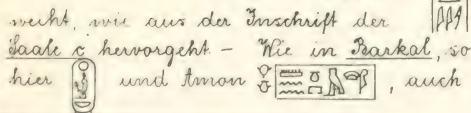 weiht, wie aus der Inschrift der
Saale c hervorgeht – Wie in Barkal, so
hier und Amon , auch